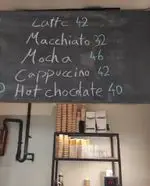 Latte 42
Macchiato 32
Mocha 46
Cappuccino 42
Hot chocolate 40